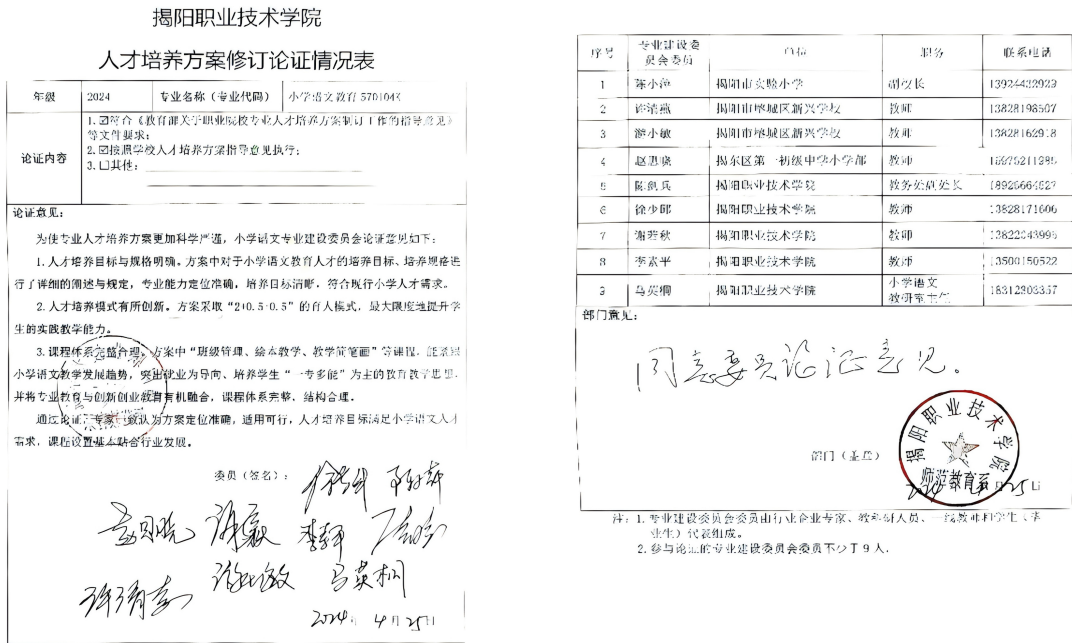 揭阳职业技术学院
人才培养方案修订论证情况表
年级 2024 专业名称（专业代码） 小学语文教育 570104K
论证内容
1.☑符合《教育部关于职业院校专业人才培养方案制订工作的指导意见》
等文件要求；
2.☑按照学校人才培养方案指导意见执行；
3.☐其他：
论证意见：
为使专业人才培养方案更加科学严谨，小学语文专业建设委员会论证意见如下：
1.人才培养目标与规格明确。方案中对于小学语文教育人才的培养目标、培养规格进
行了详细的阐述与规定，专业能力定位准确，培养目标清晰，符合现行小学人才需求。
2.人才培养模式有所创新。方案采取“2+0.5+0.5”的育人模式，最大限度地提升学
生的实践教学能力。
3.课程体系完整合理。方案中“班级管理、绘本教学、教学简笔画”等课程，能紧跟
小学语文教学发展趋势，突出就业为导向、培养学生“一专多能”为主的教育教学思想，
并将专业教育与创新创业教育有机融合，课程体系完整、结构合理。
通过论证，专家一致认为方案定位准确，适用可行，人才培养目标满足小学语文人才
需求，课程设置基本贴合行业发展。
委员（签名）：
赵思晓
李素平
马英桐
2024年 4月25日
序号 专业建设委员会委员 单位 职务 联系电话
1 陈小萍 揭阳市实验小学 副校长
2 揭阳市榕城区新兴学校 教师 13828198507
3 游小敏 揭阳市榕城区新兴学校 教师 13828162918
4 赵思晓 揭东区第一初级中学小学部 教师
5 陈剑兵 揭阳职业技术学院 教务处副处长
6 揭阳职业技术学院 教师 13828171606
7 谢若秋 揭阳职业技术学院 教师
8 李素平 揭阳职业技术学院 教师 13500150522
9 马英桐 揭阳职业技术学院 小学语文教研室主任
部门意见：
同意委员论证意见。
部门（盖章）
揭阳职业技术学院
师范教育系
注：1.专业建设委员会委员由行业企业专家、教科研人员、一线教师和学生（毕
业生）代表组成。
2.参与论证的专业建设委员会委员不少于9人.